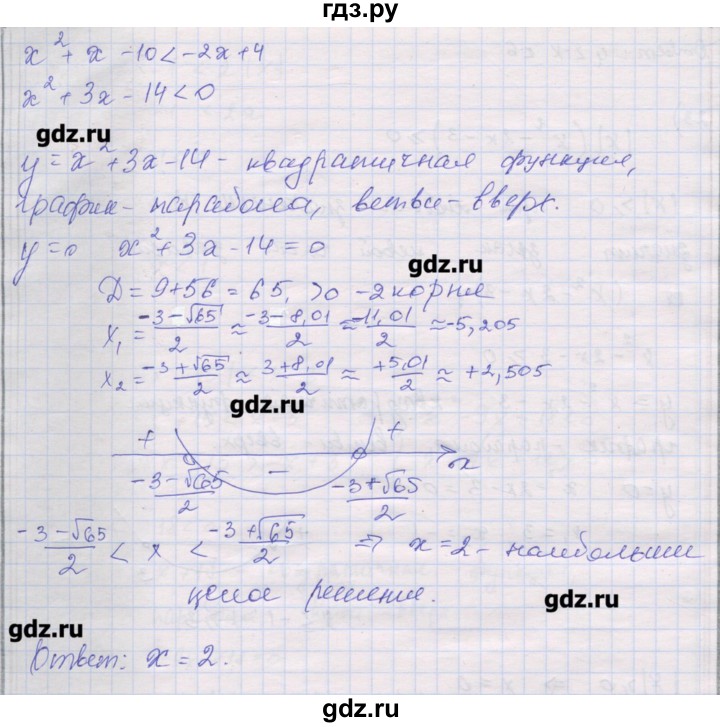 гдз.ру
x² + x - 10 < -2x + 4
x² + 3x - 14 < 0
gdz.ru
y = x² + 3x - 14 - квадратичная функция,
график - парабола, ветви - вверх.
y = 0 x² + 3x - 14 = 0
gdz.ru
D = 9 + 56 = 65, > 0 - 2 корня
x₁ = (-3 - √65)/2 ≈ (-3 - 8,01)/2 ≈ (-11,01)/2 ≈ -5,205
x₂ = (-3 + √65)/2 ≈ (3 + 8,01)/2 ≈ (+5,01)/2 ≈ +2,505
gdz.ru
+ - + x
(-3 - √65)/2 (-3 + √65)/2
(-3 - √65)/2 < x < (-3 + √65)/2 ⇒ x = 2 - наибольшее
целое решение.
gdz.ru
gdz.ru
Ответ: x = 2.